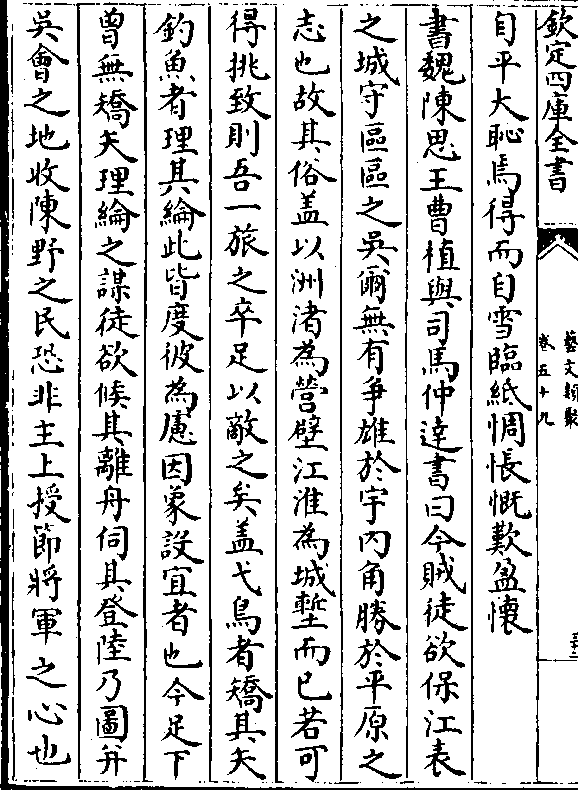 欽定四庫全書
藝文類聚
卷五十九
自平大恥焉得而自雪臨紙惆悵慨歎盈懷
書魏陳思王曹植與司馬仲達書曰今賊徒欲保江表
之城守區區之吳爾無有爭雄於宇内角勝於平原之
志也故其俗盖以洲渚為營壁江淮為城塹而已若可
得挑致則吾一旅之卒足以敵之矣盖弋鳥者矯其矢
釣魚者理其綸此皆度彼為慮因象設宜者也今足下
曾無矯矢理綸之謀徒欲候其離舟伺其登陸乃圖并
吳會之地收陳野之民恐非主上授節將軍之心也